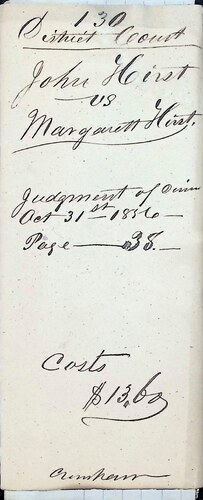 130
District Court
John Hirst
vs
Margarett Hirst.
Judgment of
Oct 31st 1856
Page 38.
Costs
$13,60